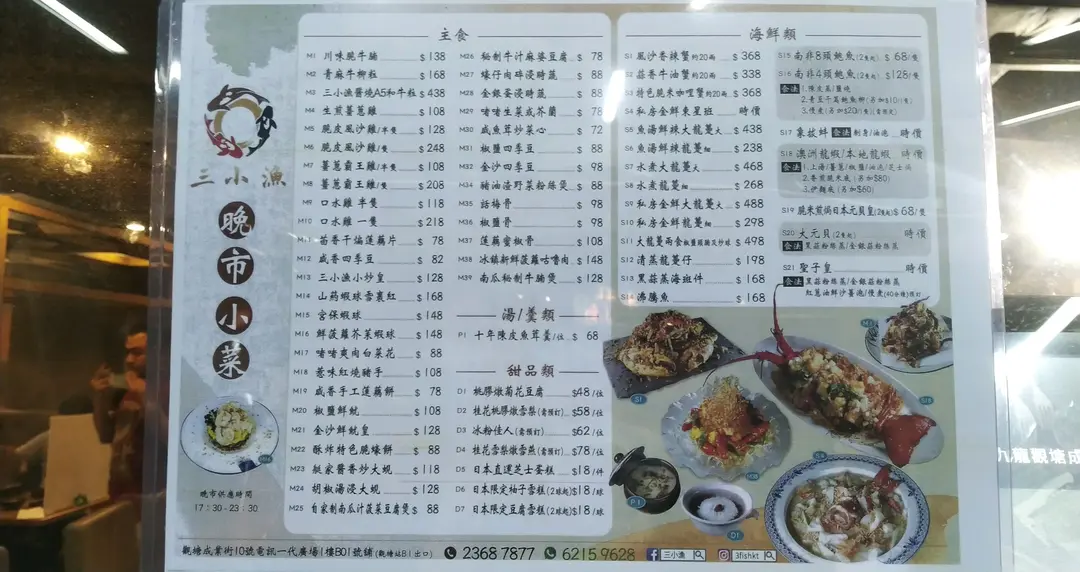 三小漁
晚市小菜
晚市供應時間
17:30 - 23:30
主食
M1 川味脆牛腩 $ 138
M2 青麻牛柳粒 $ 168
M3 三小漁醬燒A5和牛粒 $ 438
M4 生煎薑蔥雞 $ 108
M5 脆皮風沙雞/半隻 $ 128
M6 脆皮風沙雞/隻 $ 248
M7 薑蔥霸王雞/半隻 $ 108
M8 薑蔥霸王雞/隻 $ 208
M9 口水雞 半隻 $ 118
M10 口水雞 一隻 $ 218
M11 苔香千煸蓮藕片 $ 78
M12 咸香四季豆 $ 82
M13 三小漁小炒皇 $ 128
M14 山药蝦球雪裏紅 $ 168
M15 宮保蝦球 $ 148
M16 鮮菠蘿芥菜蝦球 $ 148
M17 啫啫爽肉白菜花 $ 88
M18 惹味紅燒豬手 $ 108
M19 咸香手工蓮藕餅 $ 78
M20 椒鹽鮮魷 $ 108
M21 金沙鮮魷皇 $ 128
M22 酥炸特色脆蠔餅 $ 88
M23 艇家醬香炒大蜆 $ 118
M24 胡椒湯浸大蜆 $ 128
M25 自家制南瓜汁菠菜豆腐煲 $ 88
M26 秘制牛汁麻婆豆腐 $ 78
M27 蠔仔肉碎浸時蔬 $ 88
M28 金銀蛋浸時蔬 $ 88
M29 啫啫生菜或芥蘭 $ 78
M30 咸魚茸炒菜心 $ 72
M31 椒鹽四季豆 $ 88
M32 金沙四季豆 $ 98
M34 豬油渣野菜粉絲煲 $ 88
M35 話梅骨 $ 98
M36 椒鹽骨 $ 98
M37 蓮藕蜜椒骨 $ 108
M38 冰鎮新鮮菠蘿咕嚕肉 $ 148
M39 南瓜秘制牛腩煲 $ 128
湯/羹類
P1 十年陳皮魚茸羹/位 $ 68
甜品類
D1 桃膠燉菊花豆腐 $48/位
D2 桂花桃膠燉雪梨(需預訂) $58/位
D3 冰粉佳人(需預訂) $62/位
D4 桂花雪梨燉雪燕(需預訂) $78/位
D5 日本直運芝士蛋糕 $18/件
D6 日本限定柚子雪糕(2球起) $18/球
D7 日本限定豆腐雪糕(2球起) $18/球
海鮮類
S1 風沙香辣蟹約20両 $ 368
S2 蒜香牛油蟹約20両 $ 338
S3 特色脆米咖喱蟹約20両 $ 368
S4 私房金鮮東星班 時價
S5 魚湯鮮辣大龍躉大 $ 438
S6 魚湯鮮辣龍躉細 $ 238
S7 水煮大龍躉大 $ 468
S8 水煮龍躉細 $ 268
S9 私房金鮮大龍躉大 $ 488
S10 私房金鮮龍躉細 $ 298
S11 大龍躉兩食椒鹽頭腩又炒球 $ 498
S12 清蒸龍躉仔 $ 198
S13 黑蒜蒸海斑件 $ 168
S14 沸騰魚 $ 168
S15 南非8頭鮑魚(2隻起) $ 68/隻
S16 南非4頭鮑魚(2隻起) $128/隻
食法 1.陳皮蒸/鹽燒
2.青豆千葛鮑魚柳(另加$10/隻)
3.慢煮(另加$20/隻)(需預定)
S17 象拔蚌 食法 刺身/油泡 時價
S18 澳洲龍蝦/本地龍蝦 時價
食法 1.上湯/薑蔥/椒鹽/油泡/芝士焗
2.香煎脆米底(另加$80)
3.伊麵底(另加$60)
S19 脆米煎焗日本元貝皇(2隻起) $ 68/隻
S20 大元貝(2隻起) 時價
食法 黑蒜粉絲蒸/金銀蒜粉絲蒸
S21 聖子皇 時價
食法 黑蒜粉絲蒸/金銀蒜粉絲蒸
紅蔥油鮮沙薑泡/慢煮(40分鐘)預訂
S1
M14
S18
M38
S4
P1
D1
觀塘成業街10號電訊一代廣場1樓B01號鋪(觀塘站B1出口) 2368 7877 6215 9628 三小漁 3fishkt
九龍觀塘成